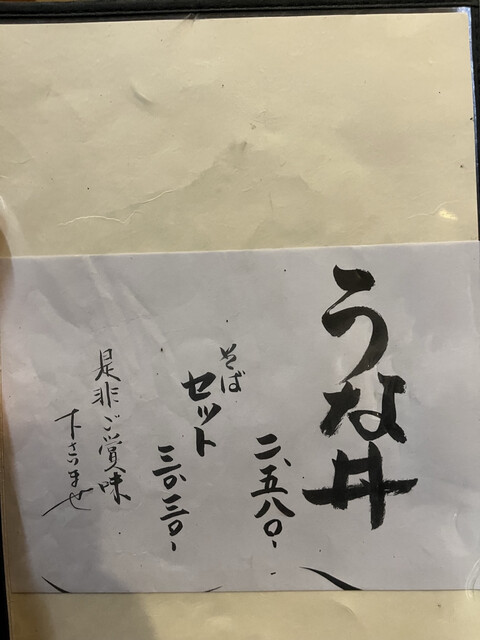 うな丼
二、五八〇-
そば
セット
三〇三〇-
是非ご賞味
下さいませ